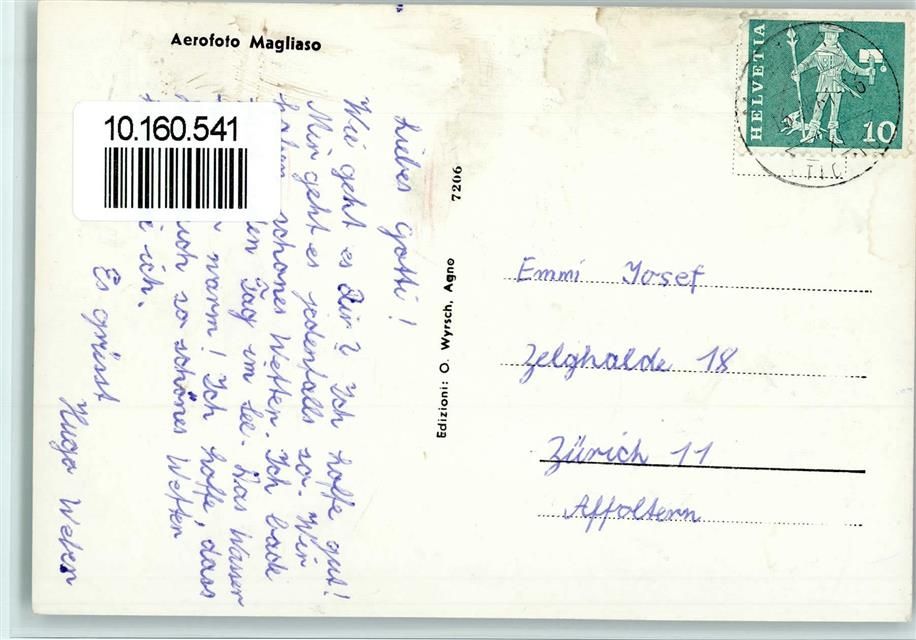 Aerofoto Magliaso
HELVETIA
10
10.160.541
Liebes Gotti!
Wie geht es Dir? Ich hoffe gut!
Mir geht es jedenfalls so. Wir
haben schönes Wetter. Ich bade
den Tag im See. Das Wasser
warm! Ich hoffe, dass
so schönes Wetter
ich.
Es grüsst
Hugo Weber
7206
Edizioni: O. Wyrsch, Agno
Emmi Josef
Zelghalde 18
Zürich 11
Affoltern